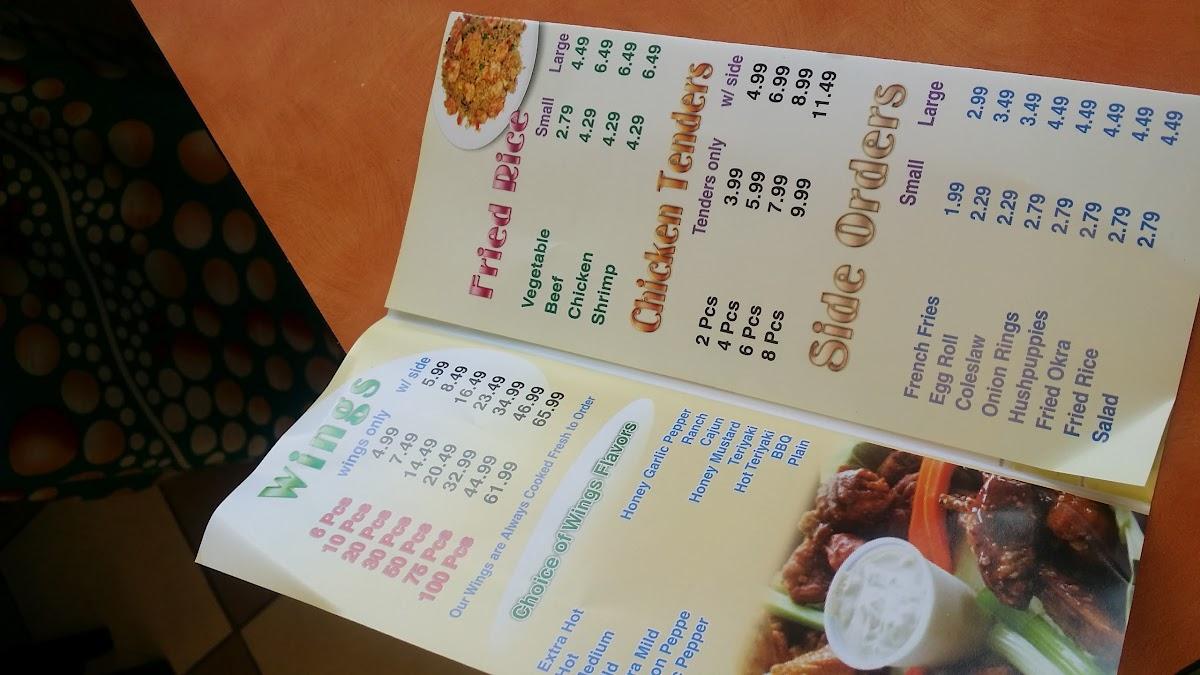 Wings
wings only w/ side
6 Pcs 4.99 5.99
10 Pcs 7.49 8.49
20 Pcs 14.49 16.49
30 Pcs 20.49 23.49
50 Pcs 32.99 34.99
75 Pcs 44.99 46.99
100 Pcs 61.99 65.99
Our Wings are Always Cooked Fresh to Order
Choice of Wings Flavors
Extra Hot
Hot
Medium
Honey Garlic Pepper
Ranch
Cajun
Honey Mustard
Teriyaki
Hot Teriyaki
BBQ
Plain
Mild
Pepper
Fried Rice
Small Large
Vegetable 2.79 4.49
Beef 4.29 6.49
Chicken 4.29 6.49
Shrimp 4.29 6.49
Chicken Tenders
Tenders only w/ side
2 Pcs 3.99 4.99
4 Pcs 5.99 6.99
6 Pcs 7.99 8.99
8 Pcs 9.99 11.49
Side Orders
Small Large
French Fries 1.99 2.99
Egg Roll 2.29 3.49
Coleslaw 2.29 3.49
Onion Rings 2.79 4.49
Hushpuppies 2.79 4.49
Fried Okra 2.79 4.49
Fried Rice 2.79 4.49
Salad 2.79 4.49